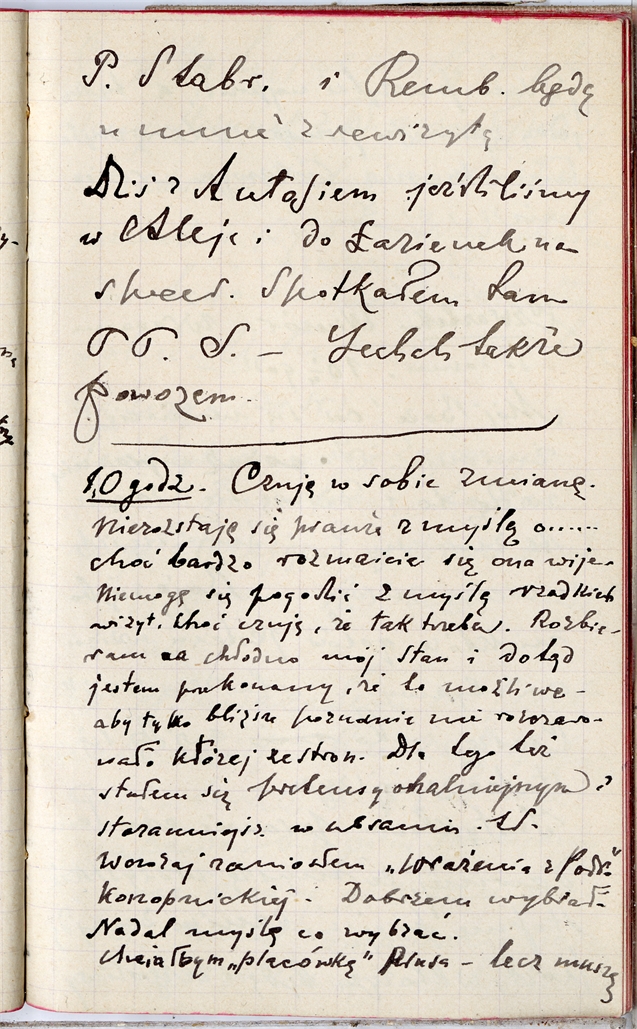 P. Stabr. i Remb. będą
u mnie z rewizytą
Dziś z Antosiem jeździliśmy
w Aleje i do Łazienek na
spacer. Spotkałem tam
P. S. – Jechali także
powozem.
10 godz. Czuję w sobie zmianę.
Nierozstaję się prawie z myślą o......
choć bardzo rozmaicie się ona wije.
Niemogę się pogodzić z myślą rzadkich
wizyt, choć czuję, że tak trzeba. Rozbie-
ram na chłodno mój stan i dotąd
jestem przekonany, że to możliwe –
aby tylko bliższe poznanie nie rozczaro-
wało której ze stron. Dla tego też
stałem się i
staranniejsz. w ubraniu. itd.
Wczoraj zaniosłem „Wrażenia z Podr."
Konopnickiej. Dobrzem wybrał.
Nadal myślę co wybrać.
chciałbym „placówkę" Prusa – lecz muszę